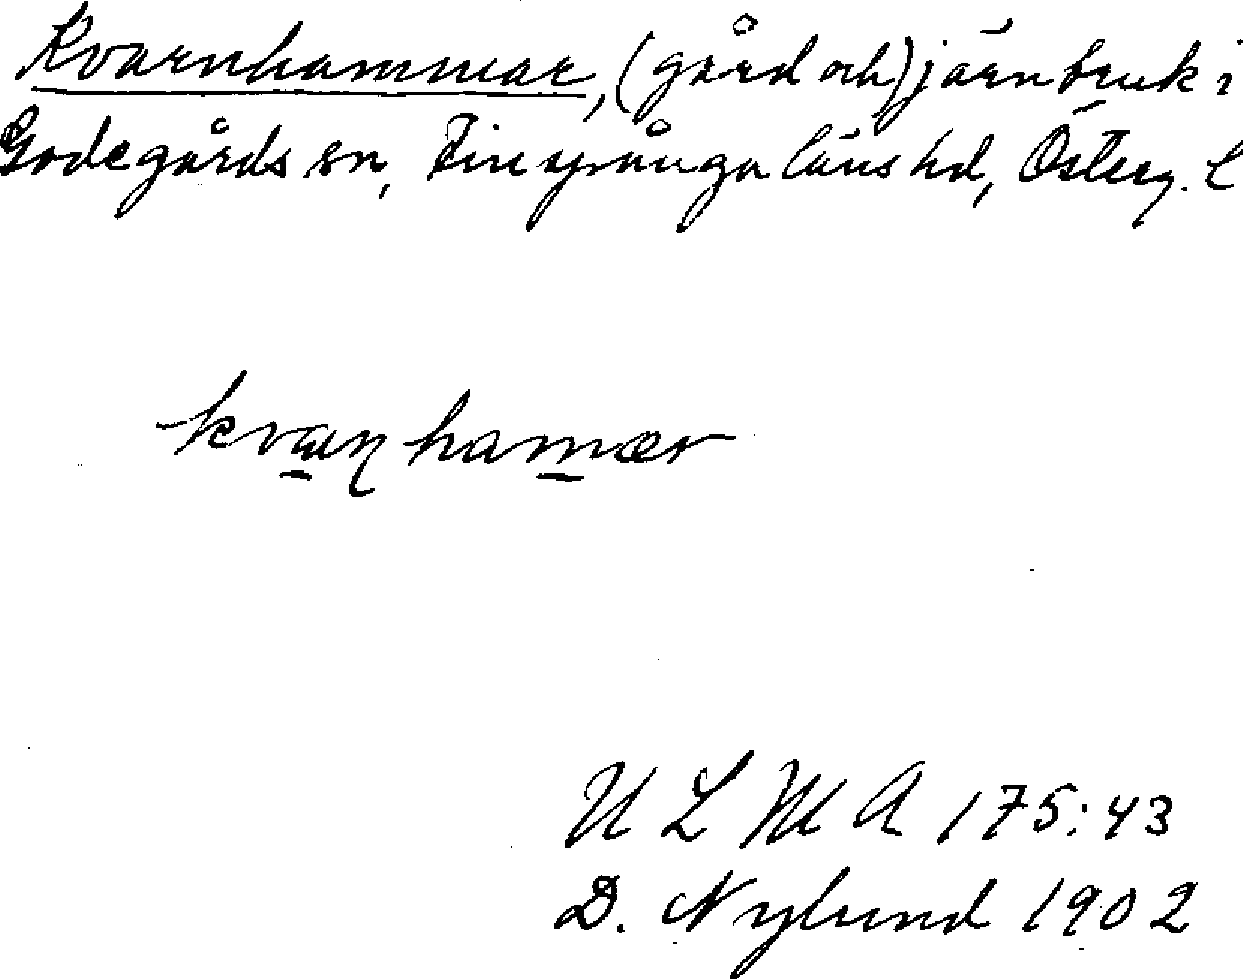 Kvarnhammar, (gård och) järnbruk i
Godegårds sn, Finspånga läns hd, Österg. l
kvaɳhamær
ULMA 175:43
D. Nylund 1902